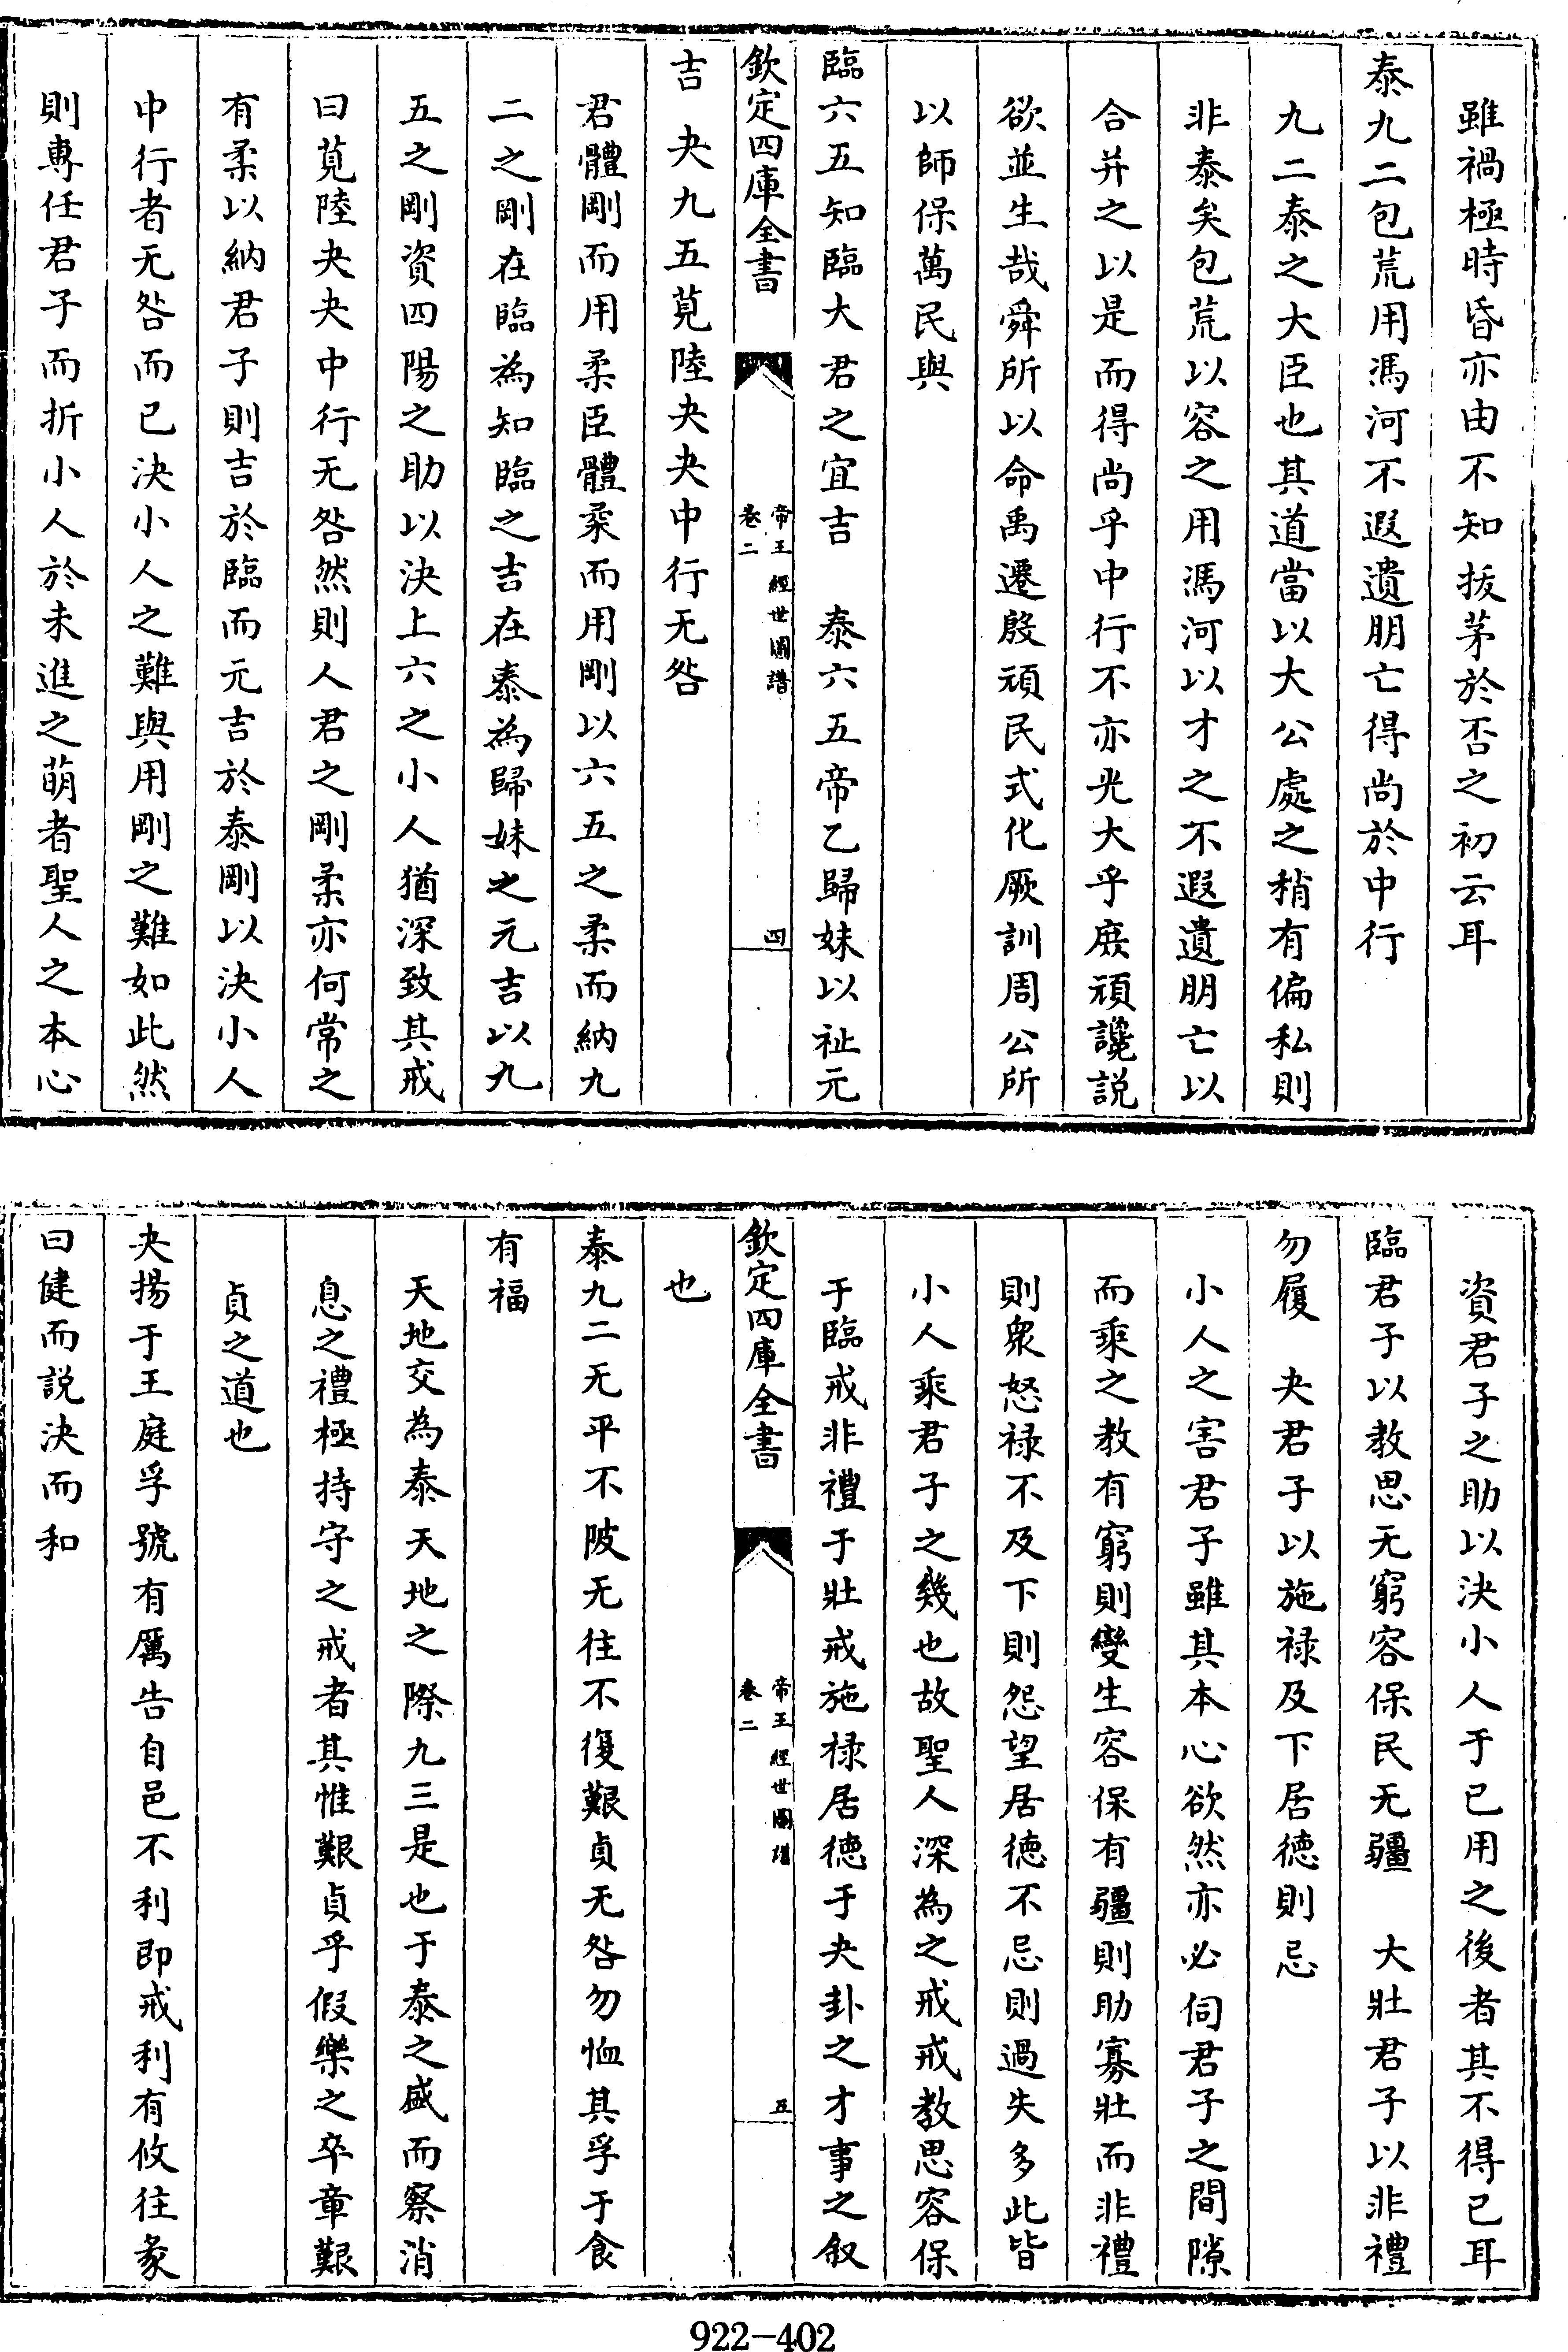 雖禍極時昏亦由不知拔茅於否之初云耳
泰九二包荒用馮河不遐遺朋亡得尚於中行
九二泰之大臣也其道當以大公處之稍有偏私則
非泰矣包荒以容之用馮河以才之不遐遺朋亡以
合并之以是而得尚乎中行不亦光大乎庶頑讒説
欲並生哉舜所以命禹遷殷頑民式化厥訓周公所
以師保萬民與
臨六五知臨大君之宜吉　泰六五帝乙歸妹以祉元
欽定四庫全書
帝王經世圖譜
卷二
四
吉　夬九五莧陸夬夬中行无咎
君體剛而用柔臣體柔而用剛以六五之柔而納九
二之剛在臨為知臨之吉在泰為歸妹之元吉以九
五之剛資四陽之助以決上六之小人猶深致其戒
曰莧陸夬夬中行无咎然則人君之剛柔亦何常之
有柔以納君子則吉於臨而元吉於泰剛以決小人
中行者无咎而已決小人之難與用剛之難如此然
則專任君子而折小人於未進之萌者聖人之本心
資君子之助以決小人于已用之後者其不得已耳
臨君子以教思无窮容保民无疆　大壯君子以非禮
勿履　夬君子以施禄及下居德則忌
小人之害君子雖其本心欲然亦必伺君子之間隙
而乘之教有窮則變生容保有疆則助寡壯而非禮
則衆怒禄不及下則怨望居德不忌則過失多此皆
小人乘君子之幾也故聖人深為之戒戒教思容保
于臨戒非禮于壯戒施禄居德于夬卦之才事之叙
欽定四庫全書
帝王經世圖譜
卷二
五
也
泰九二无平不陂无往不復艱貞无咎勿恤其孚于食
有福
天地交為泰天地之際九三是也于泰之盛而察消
息之禮極持守之戒者其惟艱貞乎假樂之卒章艱
貞之道也
夬揚于王庭孚號有厲告自邑不利即戎利有攸往彖
曰健而説決而和